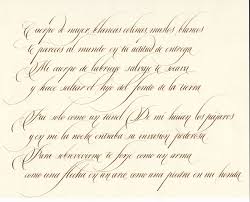 Cuerpo de mujer, blancas colinas, muslos blancos
te pareces al mundo en tu actitud de entrega
Mi cuerpo de labriego salvaje te socava
y hace saltar el hijo del fondo de la tierra
Fui solo como un tunel. De mi huian los pajaros
y en mi la noche entraba su invasion poderosa
Para sobrevivirme te forje como un arma
como una flecha en mi arco, como una piedra en mi honda.